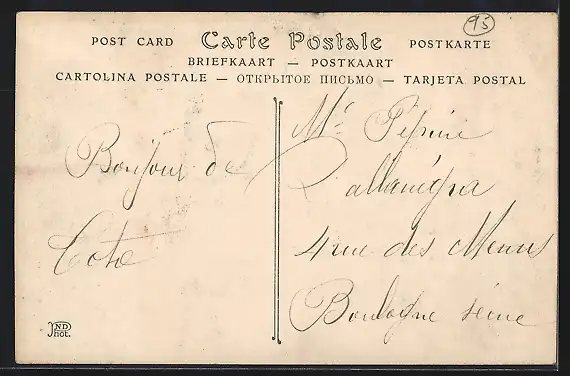 95
POST CARD Carte Postale POSTKARTE
BRIEFKAART — POSTKAART
CARTOLINA POSTALE — ОТКРЫТОЕ ПИСЬМО — TARJETA POSTAL
Bonjour de
Toto
Pépine
4 rue des Menus
Boulogne seine
ND
Phot.